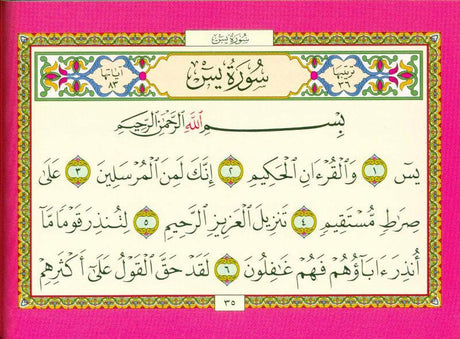 سُورَةُ يسٓ
ترتيبها ٣٦
سُورَةُ يسٓ
آياتها ٨٣
بِسْمِ اللَّهِ الرَّحْمَٰنِ الرَّحِيمِ
يسٓ ١ وَالْقُرْءَانِ الْحَكِيمِ ٢ إِنَّكَ لَمِنَ الْمُرْسَلِينَ ٣ عَلَىٰ
صِرَٰطٍ مُّسْتَقِيمٍ ٤ تَنزِيلَ الْعَزِيزِ الرَّحِيمِ ٥ لِتُنذِرَ قَوْمًا مَّا
أُنذِرَ ءَابَآؤُهُمْ فَهُمْ غَٰفِلُونَ ٦ لَقَدْ حَقَّ الْقَوْلُ عَلَىٰٓ أَكْثَرِهِمْ
٣٥